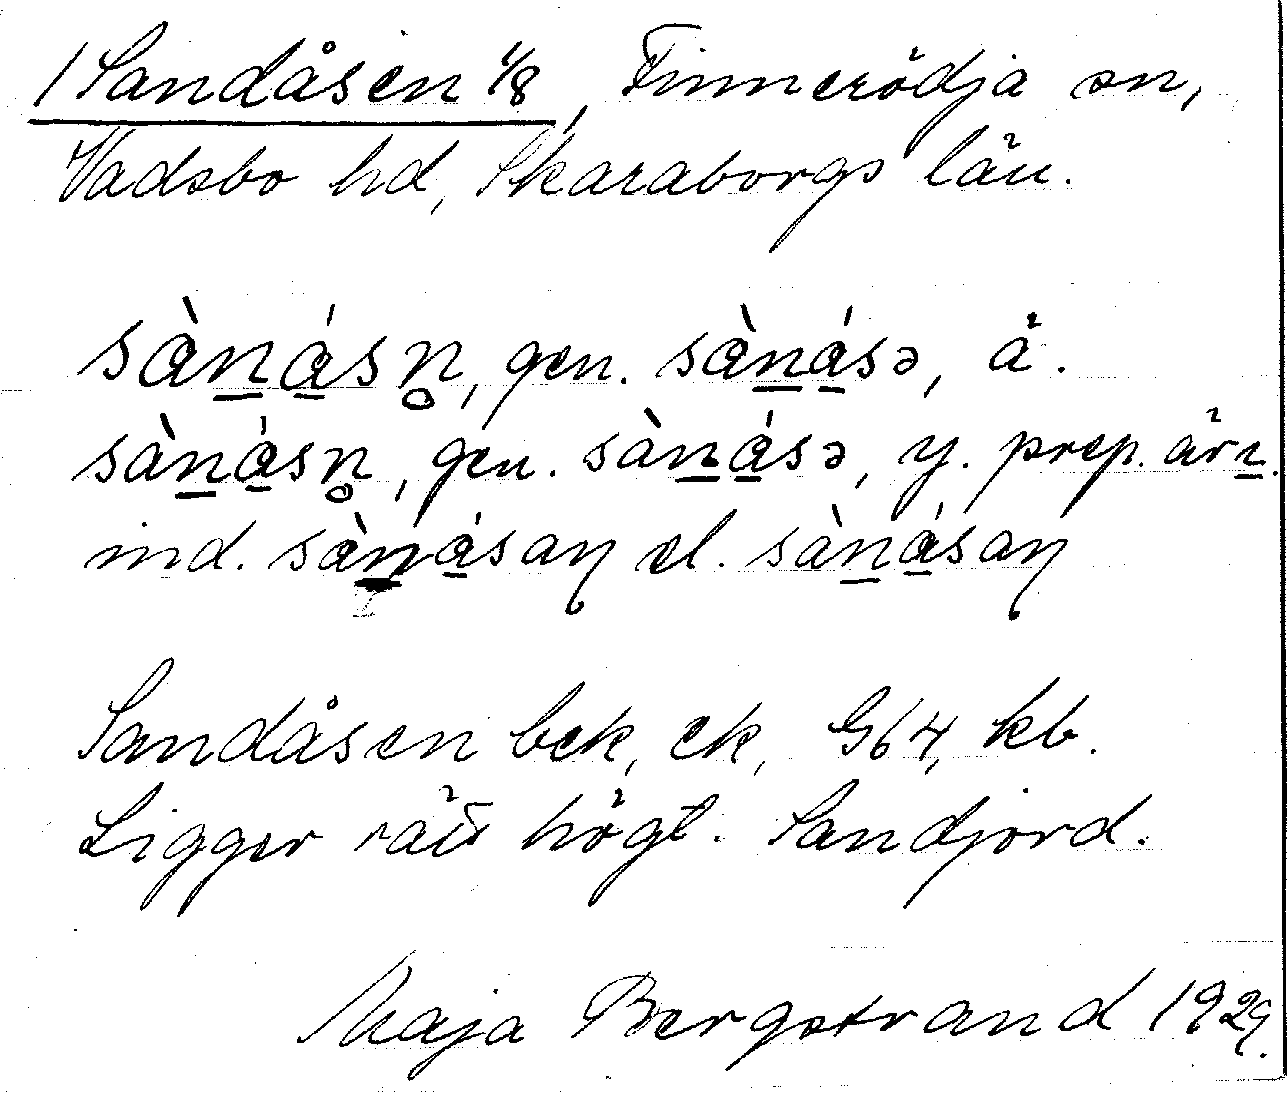 1 Sandåsen 1/8, Finnerödja sn,
Vadsbo hd, Skaraborgs län.
sànásn̥, gen. sànásə, ä.
sànásn̥, gen. sànásə, y. prep.
ind. sànásaŋ el. sànásaŋ
Sandåsen bek, ek, G64, kb.
Ligger rätt högt. Sandjord.
Maja Bergstrand 1929.